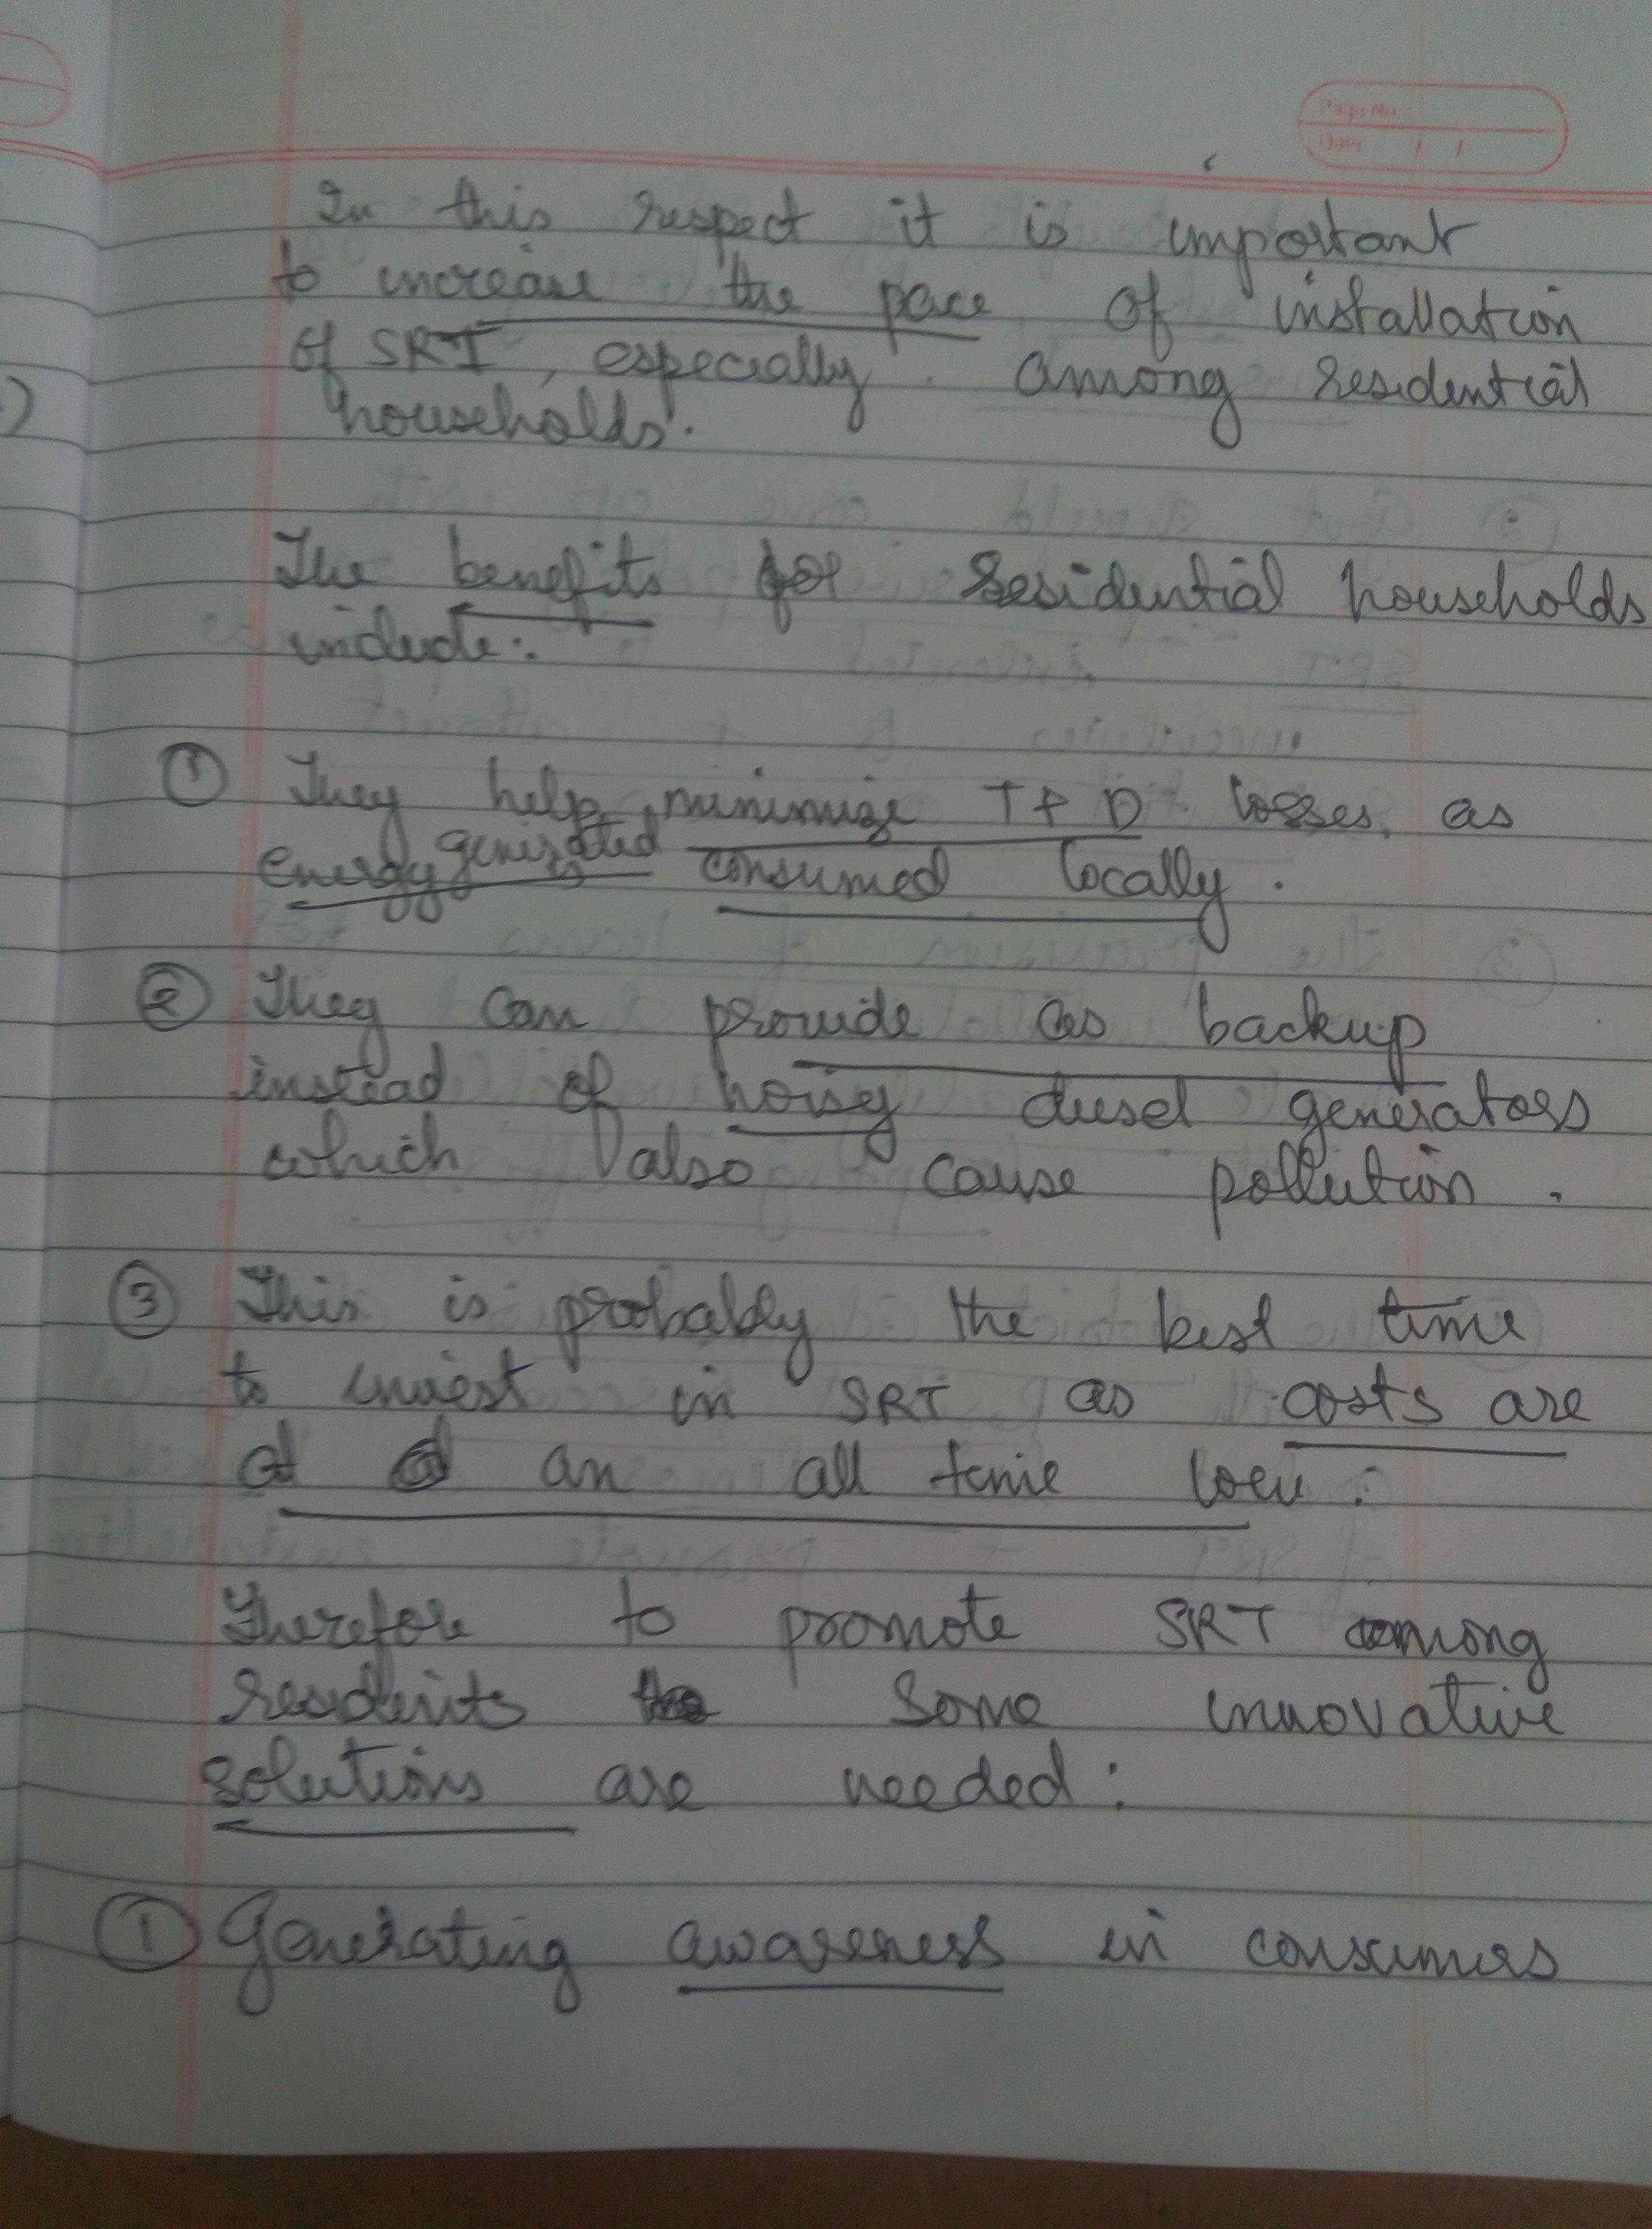 Page No.:
Date / /
In this respect it is important
to increase the pace of installation
of SRT, especially among residential
households.
The benefits for residential households
include:
① They help minimize T+D losses, as
energy generated is consumed locally.
② They can provide as backup
instead of noisy diesel generators
which also cause pollution.
③ This is probably the best time
to invest in SRT as costs are
at an all time low.
Therefore to promote SRT among
residents some innovative
solutions are needed:
① Generating awareness in consumers